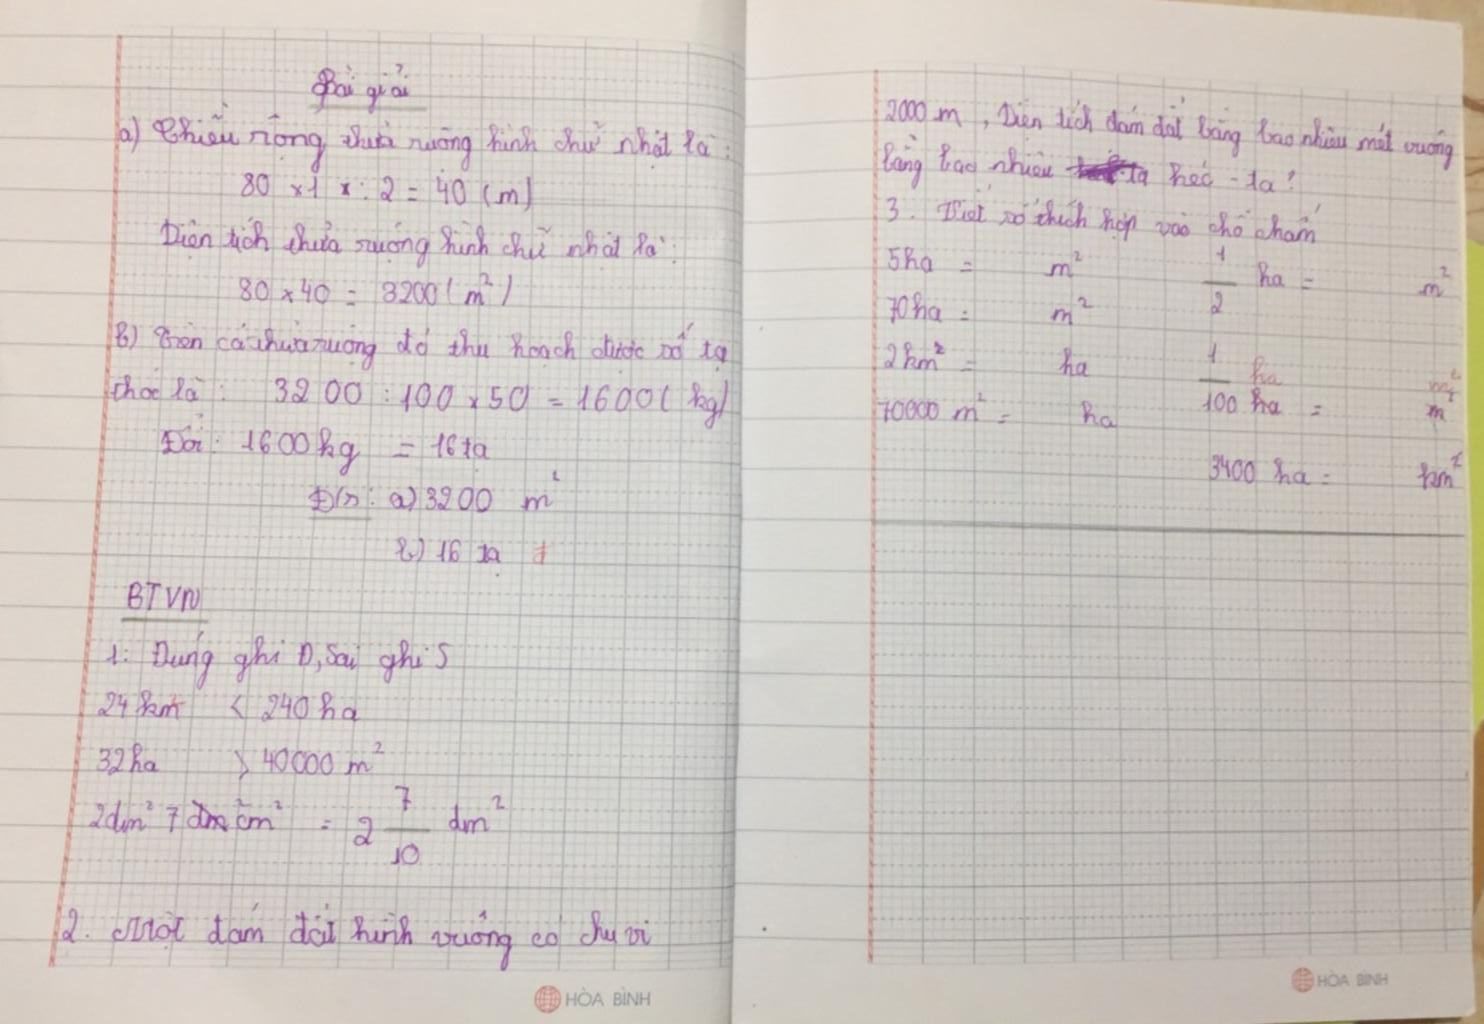 Bài giải
a) Chiều rộng thửa ruộng hình chữ nhật là:
80 x 1 x : 2 = 40 (m)
Diện tích thửa ruộng hình chữ nhật là:
80 x 40 = 3200 (m²)
b) Trên cả thửa ruộng đó thu hoạch được số tạ
thóc là: 3200 : 100 x 50 = 1600 (kg)
Đổi: 1600 kg = 16 tạ
Đ/s: a) 3200 m²
b) 16 tạ
BTVN
1: Đúng ghi Đ, Sai ghi S
24 km² < 240 ha
32 ha > 40000 m²
2dm² 7 cm² = 2 7/10 dm²
2. Một đám đất hình vuông có chu vi
HÒA BÌNH
2000 m, Diện tích đám đất bằng bao nhiêu mét vuông
bằng bao nhiêu héc-ta?
3. Viết số thích hợp vào chỗ chấm
5ha = m² 1/2 ha = m²
70ha = m²
2km² = ha 1/100 ha = m²
70000 m² = ha
3400 ha = km²
HÒA BÌNH